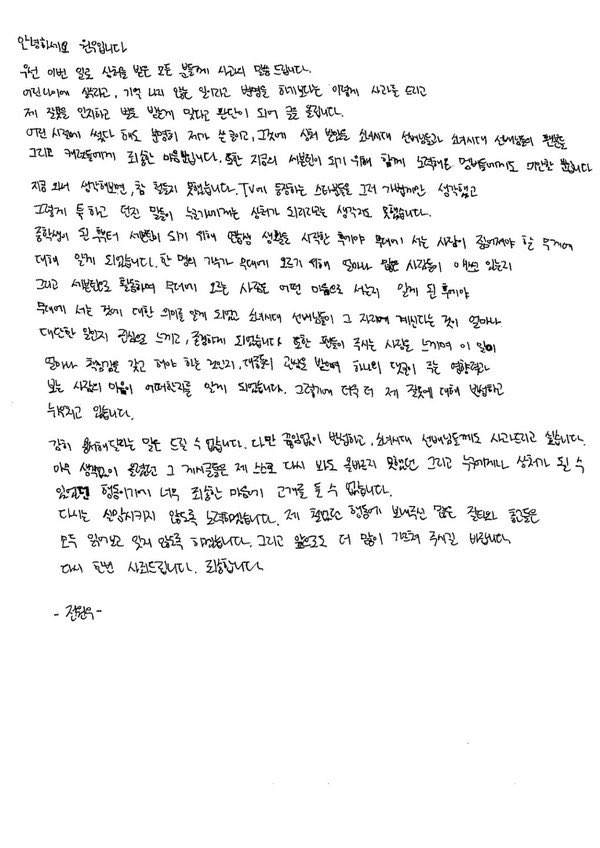 안녕하세요 원우입니다
우선 이번 일로 상처를 받은 모든 분들께 사과의 말씀 드립니다.
어린나이에 썼다고, 기억 나지 않는 일이라고 변명을 하기보다는 이렇게 사과를 드리고
제 잘못을 인지하고 벌을 받는게 맞다고 판단이 되어 글을 올립니다.
어떤 시점에 썼다 해도 분명히 제가 쓴 글이고, 그것에 상처 받았을 소녀시대 선배님들과 소녀시대 선배님들의 팬분들
그리고 캐럿들에게 죄송한 마음뿐입니다. 또한 지금의 세븐틴이 되기 위해 함께 노력해온 멤버들에게도 미안할 뿐입니다
지금 와서 생각해보면, 참 철들지 못했습니다. TV에 등장하는 스타분들을 그저 가볍게만 생각했고
그렇게 툭 하고 던진 말들이 누군가에게는 상처가 되리라고는 생각지도 못했습니다.
중학생이 된 후부터 세븐틴이 되기 위해 연습생 생활을 시작한 후에야 무대에 서는 사람이 짊어져야 할 무게에
대해 알게 되었습니다. 한 명의 가수가 무대에 오르기 위해 얼마나 많은 사람들이 애쓰고 있는지
그리고 세븐틴으로 활동하며 무대에 오르는 사람은 어떤 마음으로 서는지 알게 된 후에야
무대에 서는 것에 대한 의미를 알게 되었고 소녀시대 선배님들이 그 자리에 계신다는 것이 얼마나
대단한 일인지 진심으로 느끼고, 존경하게 되었습니다 또한 팬들이 주시는 사랑을 느끼며 이 일이
얼마나 책임감을 갖고 해야 하는 것인지, 대중들의 관심을 받으며 하나의 댓글이 주는 영향력과
보는 사람의 마음이 어떠한지를 알게 되었습니다. 그렇기에 더욱 더 제 잘못에 대해 반성하고
뉘우치고 있습니다.
감히 용서해달라는 말은 드릴 수 없습니다. 다만 끊임없이 반성하고, 소녀시대 선배님들께도 사과드리고 싶습니다.
아무 생각없이 올렸던 그 게시글들은 제 스스로 다시 봐도 올바르지 못했던 그리고 누구에게나 상처가 될 수
있었던 행동이기에 너무 죄송한 마음에 고개를 들 수 없습니다.
다시는 실망시키지 않도록 노력하겠습니다. 제 철없던 행동에 보내주신 많은 질타와 충고들은
모두 읽어보고 잊지 않도록 하겠습니다. 그리고 앞으로도 더 많이 가르쳐 주시길 바랍니다.
다시 한번 사죄드립니다. 죄송합니다.
- 전원우 -